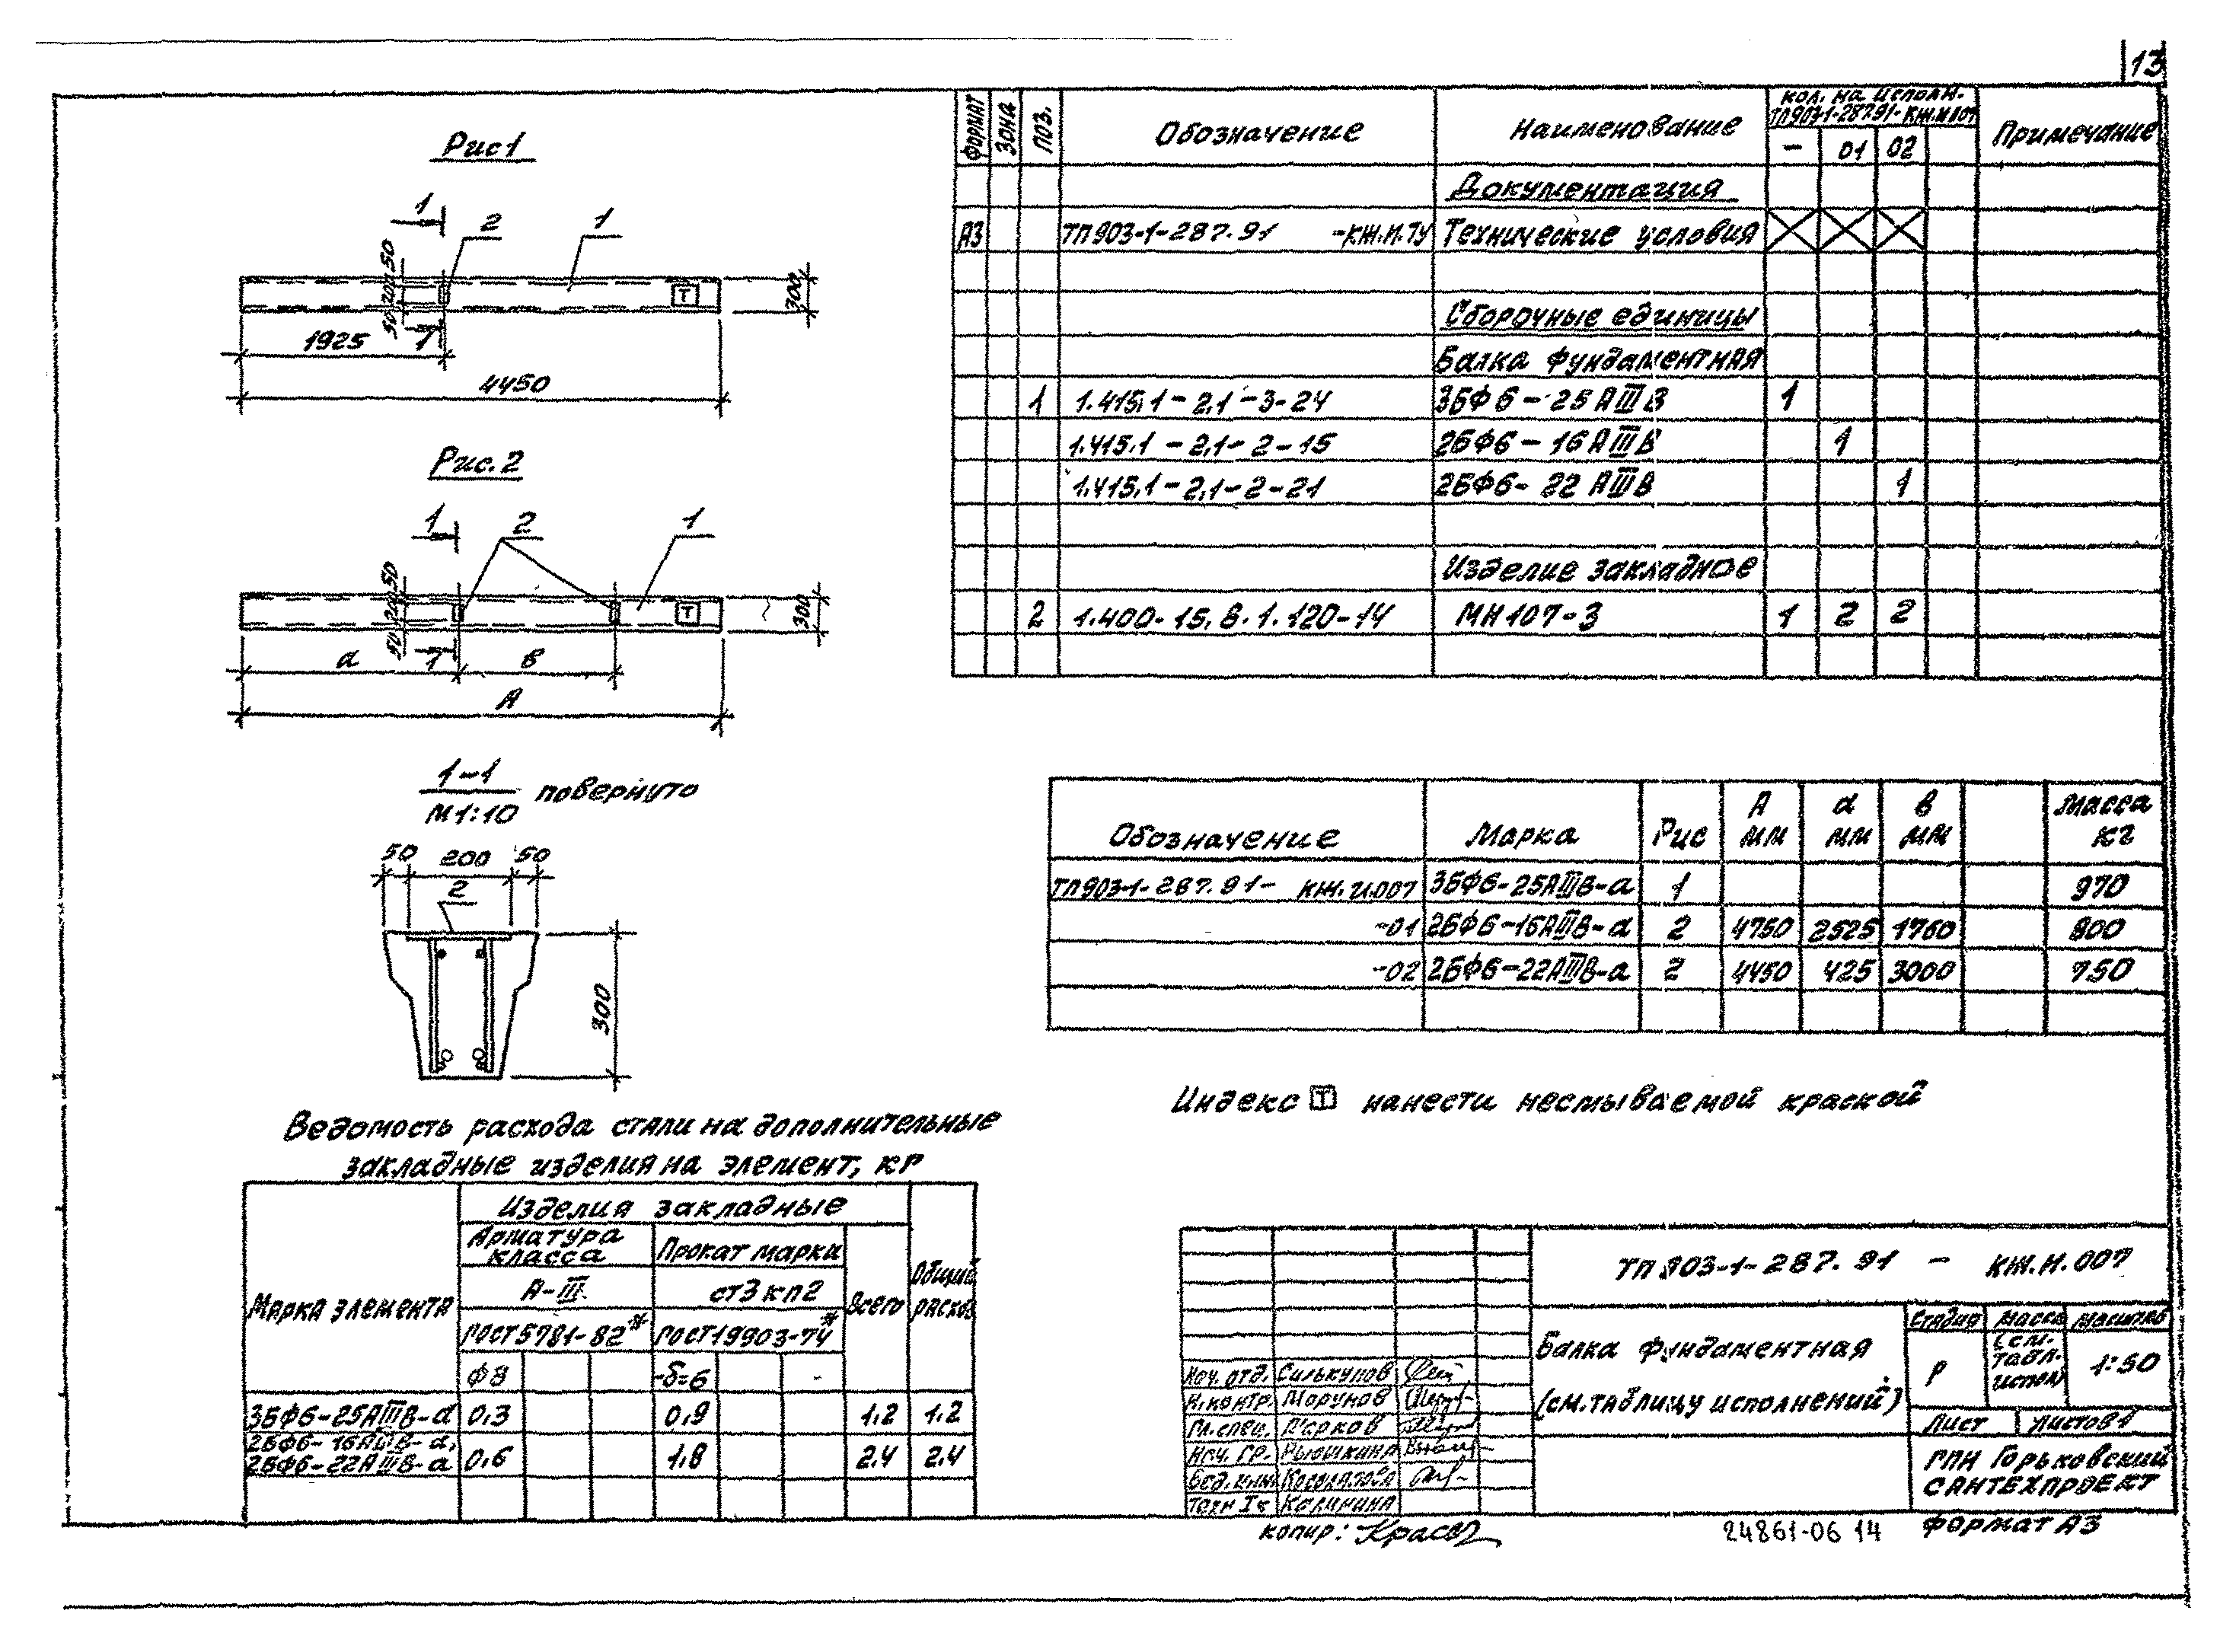 13
Рис1
1 2 1
50 200 50
Т
300
1 1925
4450
Рис. 2
1 2 1
50 200 50
Т
300
а 1 в
А
1-1 повернуто
М1:10
50 200 50
2
300
ФОРМАТ ЗОНА ПОЗ. Обозначение Наименование Кол. на исполн. Примечание
ТП903-1-287.91-КЖ.И.007
– 01 02
Документация
А3 ТП903-1-287.91 -КЖ.И.ТУ Технические условия
Сборочные единицы
Балка фундаментная
1 1.415.1-2.1-3-24 3БФ6-25АIIIВ 1
1.415.1-2.1-2-15 2БФ6-16АIIIВ 1
1.415.1-2.1-2-21 2БФ6-22АIIIВ 1
Изделие закладное
2 1.400-15.В.1.120-14 МН107-3 1 2 2
Обозначение Марка Рис А мм а мм в мм Масса кг
ТП903-1-287.91- КЖ.И.007 3БФ6-25АIIIВ-а 1 970
-01 2БФ6-16АIIIВ-а 2 4750 2525 1760 800
-02 2БФ6-22АIIIВ-а 2 4450 425 3000 750
Индекс Т нанести несмываемой краской
Ведомость расхода стали на дополнительные
закладные изделия на элемент, кг
Марка элемента Изделия закладные Общий расход
Арматура класса Прокат марки Всего
А-III ст3кп2
ГОСТ5781-82* ГОСТ19903-74*
ф8 -δ=6
3БФ6-25АIIIВ-а 0,3 0,9 1,2 1,2
2БФ6-16АIIIВ-а,
2БФ6-22АIIIВ-а 0,6 1,8 2,4 2,4
ТП 903-1-287.91 – КЖ.И.007
Балка фундаментная
(см. таблицу исполнений)
Стадия Масса Масштаб
Р (см. табл. испол) 1:50
Лист Листов 1
ГПИ Горьковский
САНТЕХПРОЕКТ
Нач. отд. Силькунов
Н.контр. Морунов
Гл. спец.
Нач. гр. Вьюшкина
Вед. инж
Техн Iк Калинина
копир:
24861-06 14
Формат А3